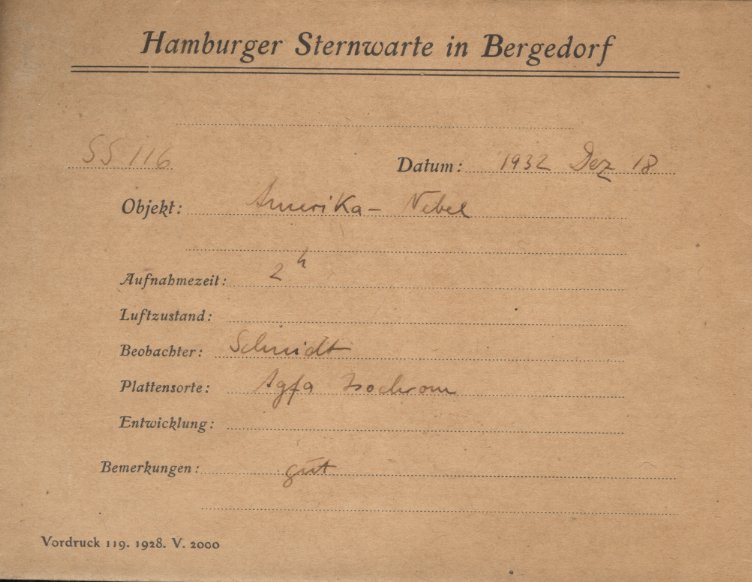 Hamburger Sternwarte in Bergedorf
SS 116
Datum: 1932 Dez 18
Objekt: Amerika- Nebel
Aufnahmezeit: 2h
Luftzustand:
Beobachter: Schmidt
Plattensorte: Agfa Isochrom
Entwicklung:
Bemerkungen: gut
Vordruck 119. 1928. V. 2000